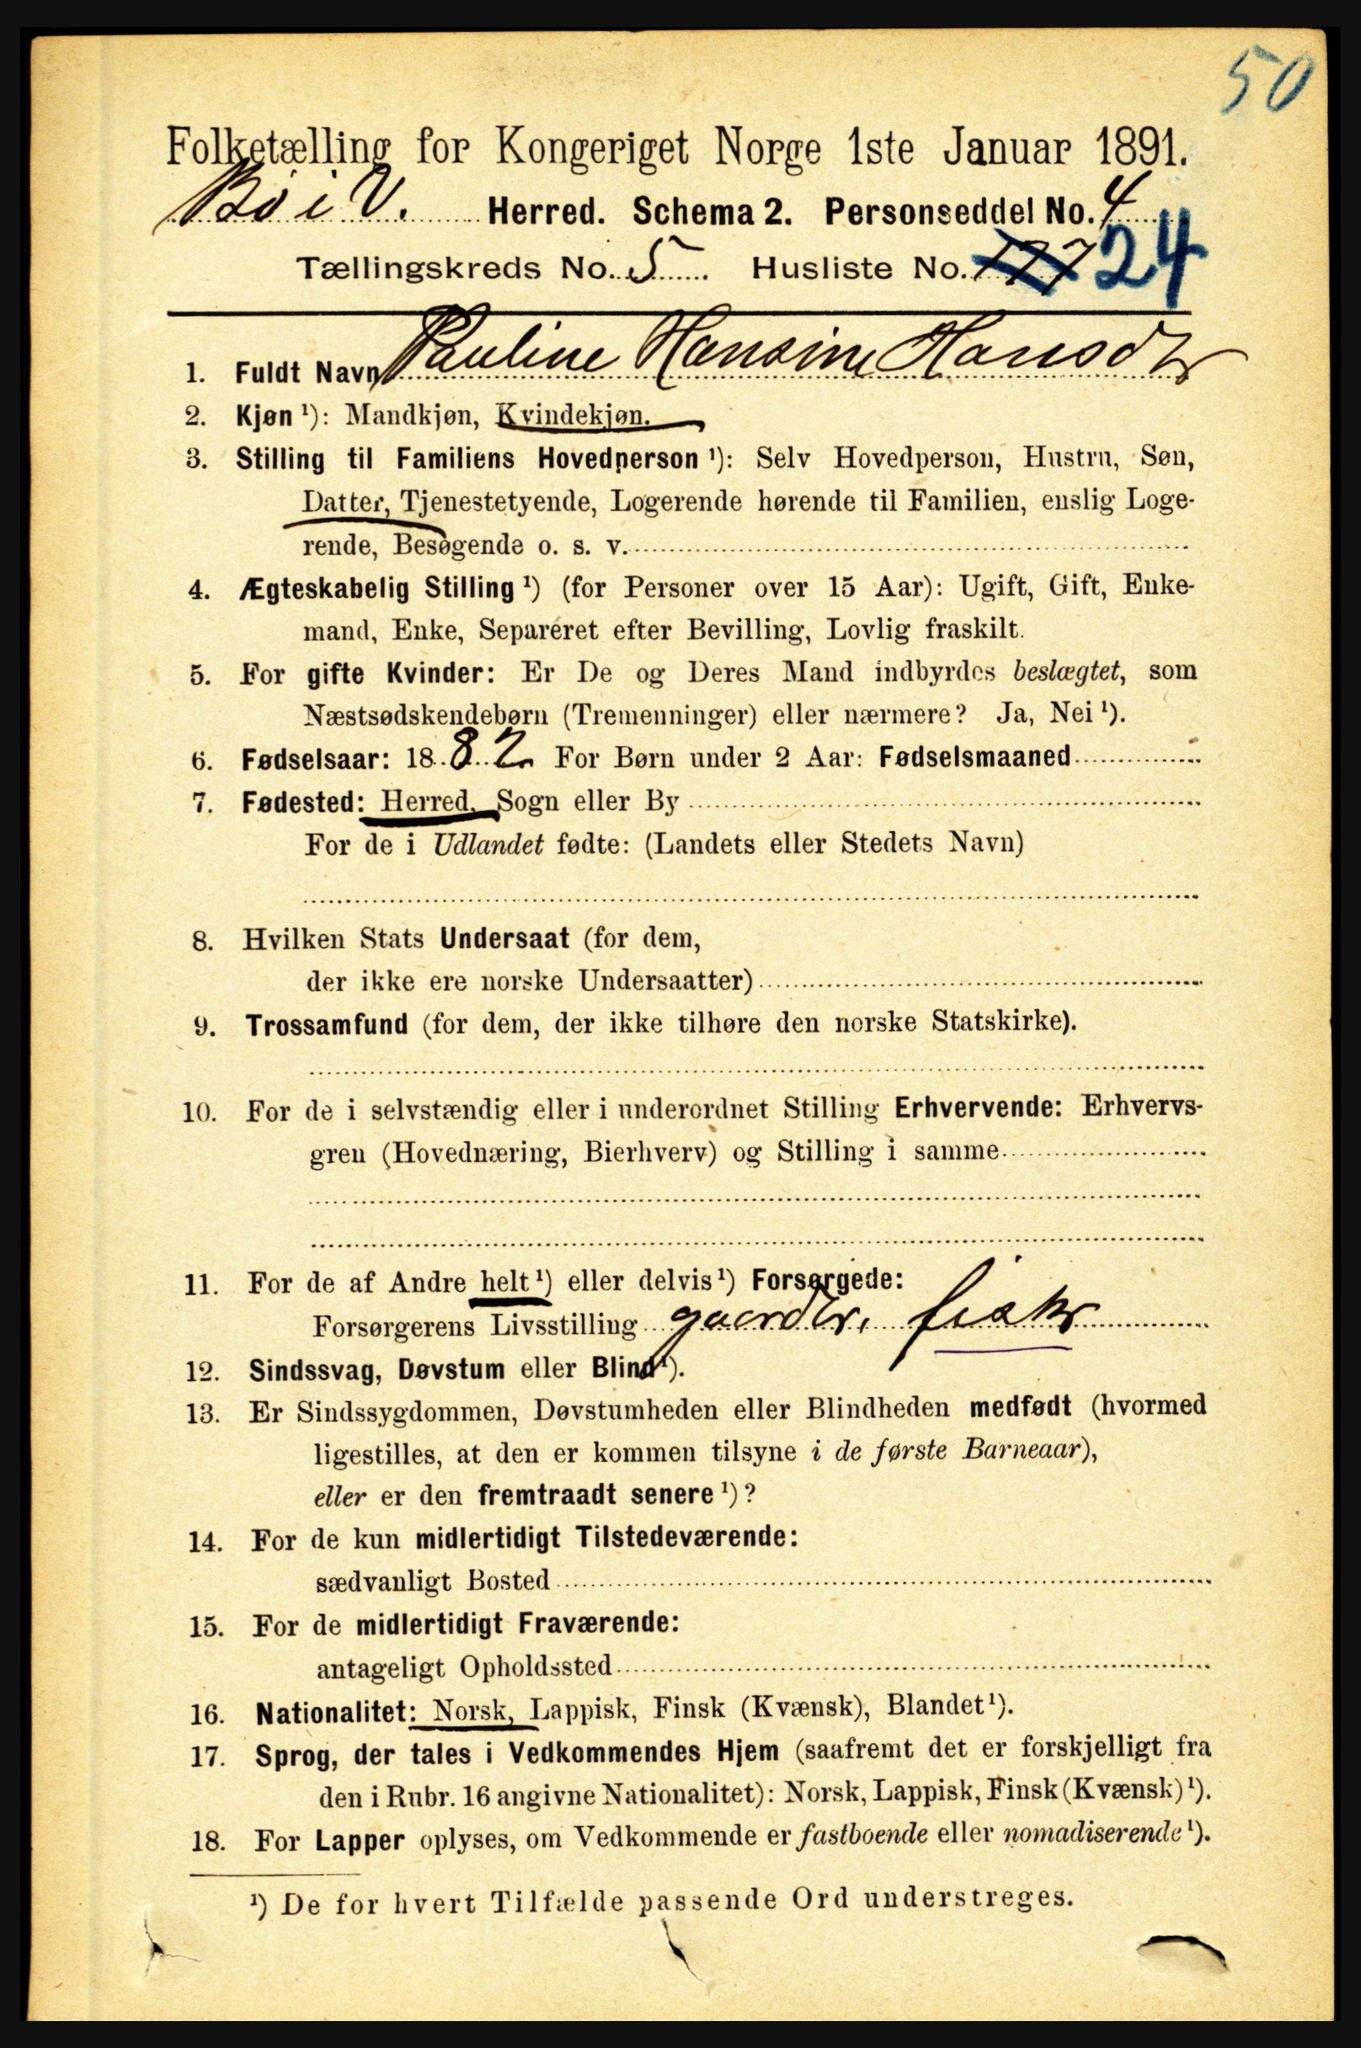 50
Folketælling for Kongeriget Norge 1ste Januar 1891.
Bø i V. Herred. Schema 2. Personseddel No. 4
Tællingskreds No. 5 Husliste No. 177 24
1. Fuldt Navn Pauline Hansine Hansdr
2. Kjøn ¹): Mandkjøn, Kvindekjøn.
3. Stilling til Familiens Hovedperson ¹): Selv Hovedperson, Hustru, Søn,
Datter, Tjenestetyende, Logerende hørende til Familien, enslig Loge-
rende, Besøgende o. s. v.
4. Ægteskabelig Stilling ¹) (for Personer over 15 Aar): Ugift, Gift, Enke-
mand, Enke, Separeret efter Bevilling, Lovlig fraskilt.
5. For gifte Kvinder: Er De og Deres Mand indbyrdes beslægtet, som
Næstsødskendebørn (Tremenninger) eller nærmere? Ja, Nei ¹).
6. Fødselsaar: 18 82 For Børn under 2 Aar: Fødselsmaaned
7. Fødested: Herred, Sogn eller By
For de i Udlandet fødte: (Landets eller Stedets Navn)
8. Hvilken Stats Undersaat (for dem,
der ikke ere norske Undersaatter)
9. Trossamfund (for dem, der ikke tilhøre den norske Statskirke).
10. For de i selvstændig eller i underordnet Stilling Erhvervende: Erhvervs-
gren (Hovednæring, Bierhverv) og Stilling i samme
11. For de af Andre helt ¹) eller delvis ¹) Forsørgede:
Forsørgerens Livsstilling gaardbr, fisker
12. Sindssvag, Døvstum eller Blind ¹).
13. Er Sindssygdommen, Døvstumheden eller Blindheden medfødt (hvormed
ligestilles, at den er kommen tilsyne i de første Barneaar),
eller er den fremtraadt senere ¹)?
14. For de kun midlertidigt Tilstedeværende:
sædvanligt Bosted
15. For de midlertidigt Fraværende:
antageligt Opholdssted
16. Nationalitet: Norsk, Lappisk, Finsk (Kvænsk), Blandet ¹).
17. Sprog, der tales i Vedkommendes Hjem (saafremt det er forskjelligt fra
den i Rubr. 16 angivne Nationalitet): Norsk, Lappisk, Finsk (Kvænsk) ¹).
18. For Lapper oplyses, om Vedkommende er fastboende eller nomadiserende ¹).
¹) De for hvert Tilfælde passende Ord understreges.